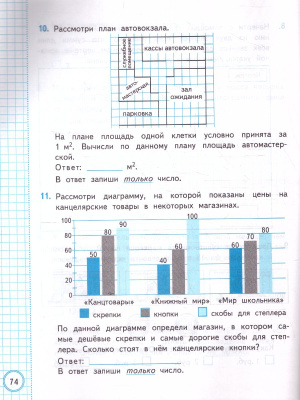 10. Рассмотри план автовокзала.
служебное
помещение
кассы автовокзала
авто-
мастерская
зал
ожидания
парковка
На плане площадь одной клетки условно принята за
1 м². Вычисли по данному плану площадь автомастер-
ской.
Ответ: м².
В ответ запиши только число.
11. Рассмотри диаграмму, на которой показаны цены на
канцелярские товары в некоторых магазинах.
100
80
60
40
20
0
50 80 90
40 60 100
60 70 80
«Канцтовары» «Книжный мир» «Мир школьника»
скрепки кнопки скобы для степлера
По данной диаграмме определи магазин, в котором са-
мые дешёвые скрепки и самые дорогие скобы для степ-
лера. Сколько стоят в нём канцелярские кнопки?
Ответ:
В ответ запиши только число.
74